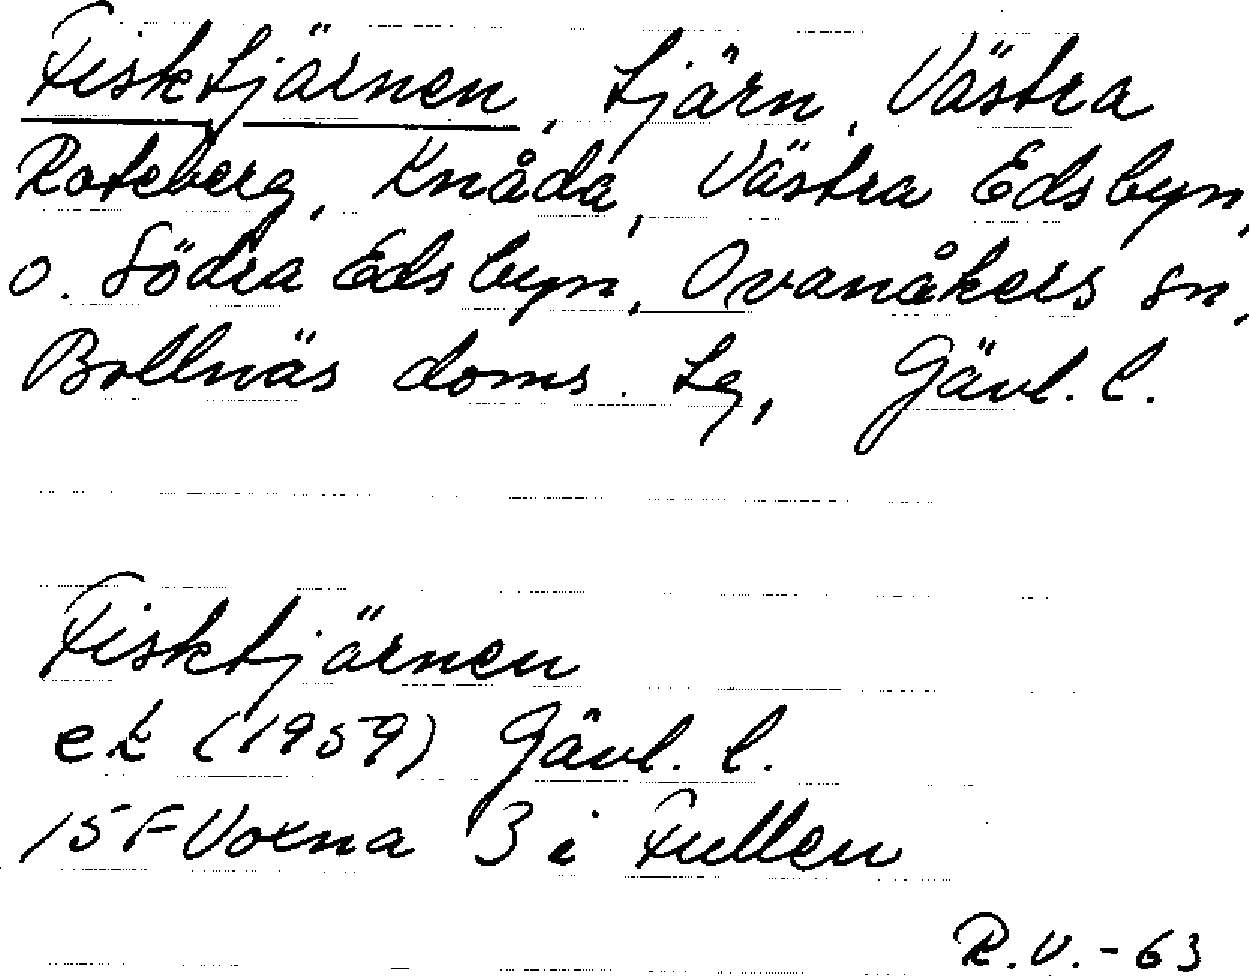 Fisktjärnen, tjärn, Västra
Roteberg, Knåda, Västra Edsbyn,
o. Södra Edsbyn, Ovanåkers sn,
Bollnäs doms. Lg, Gävl. l.
Fisktjärnen
ek (1959) Gävl. l.
15 F Voxna 3 i Fullen
R.V.-63